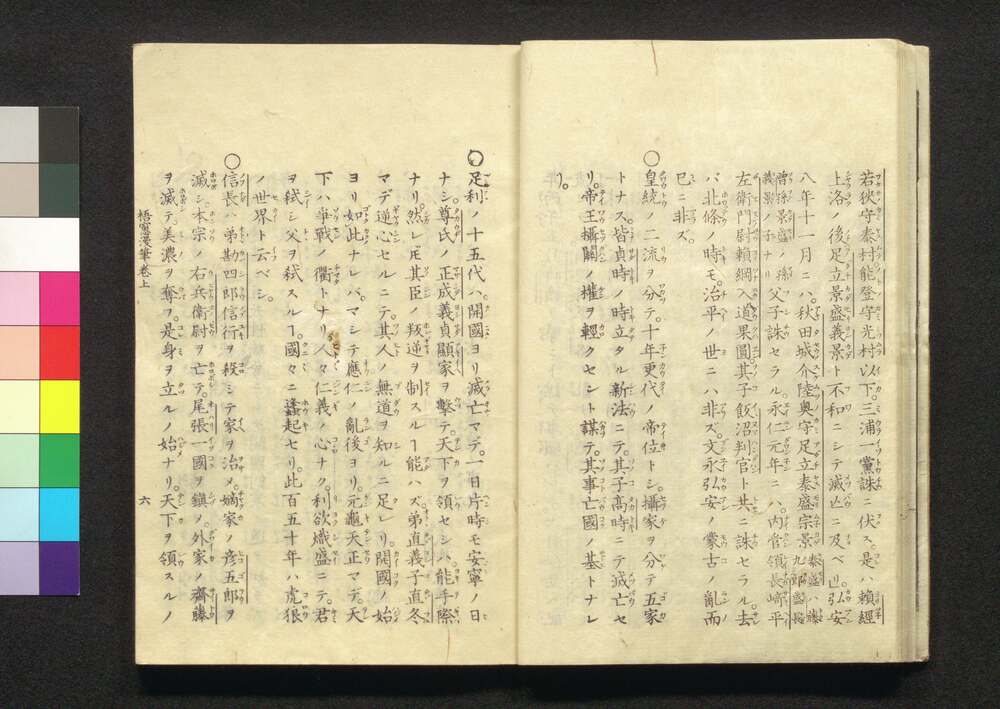 若狹守泰村能登守光村以下三浦一黨誅ニ伏ス。是ハ賴經
上洛ノ後足立景盛義景ト不和ニシテ滅亡ニ及ベリ。弘安
八年十一月ニハ秋田城介陸奥守足立泰盛宗景
父子誅セラル。永仁元年ニハ内管領長崎平
左衛門尉賴綱入道果圓其子飯沼判官ト共ニ誅セラル。去
バ北條ノ時モ治平ノ世ニハ非ズ。文永弘安ノ蒙古ノ亂而
已ニ非ズ。
○皇統ノ二流ヲ分テ十年更代ノ帝位トシ。攝家ヲ分テ五家
トナス。皆貞時ノ時立タル新法ニテ。其子高時ニテ滅亡セ
リ。帝王攝關ノ權ヲ輕クセント謀テ。其事亡國ノ基トナレ
リ。
○足利ノ十五代ハ開國ヨリ滅亡マデ。一日片時モ安寧ノ日
ナシ。尊氏ノ正成義貞顯家ヲ擊テ天下ヲ領セシハ。能手際
ナリ。然レ𪜈其臣ノ叛逆ヲ制スルヿ能ハズ。弟直義子直冬
マデ逆心セルニテ其人ノ無道ヲ知ルニ足レリ。開國ノ始
ヨリ如此ナレバ。マシテ應仁ノ亂後ヨリ。元龜天正マデ。天
下ハ爭戰ノ衢トナリ。人々仁義ノ心ナク。利欲熾盛ニテ。君
ヲ弑シ父ヲ弑スルヿ。國々ニ蜂起セリ。此百五十年ハ虎狼
ノ世界ト云ベシ。
○信長ハ弟勘四郎信行ヲ殺シテ家ヲ治メ。嫡家ノ彦五郎ヲ
滅シ。本宗ノ右兵衛尉ヲ亡テ。尾張一國ヲ鎭ノ。外家ノ齋藤
ヲ滅テ美濃ヲ奪フ。是身ヲ立ルノ始ナリ。天下ヲ領スルノ
梧窓漫筆卷上
六